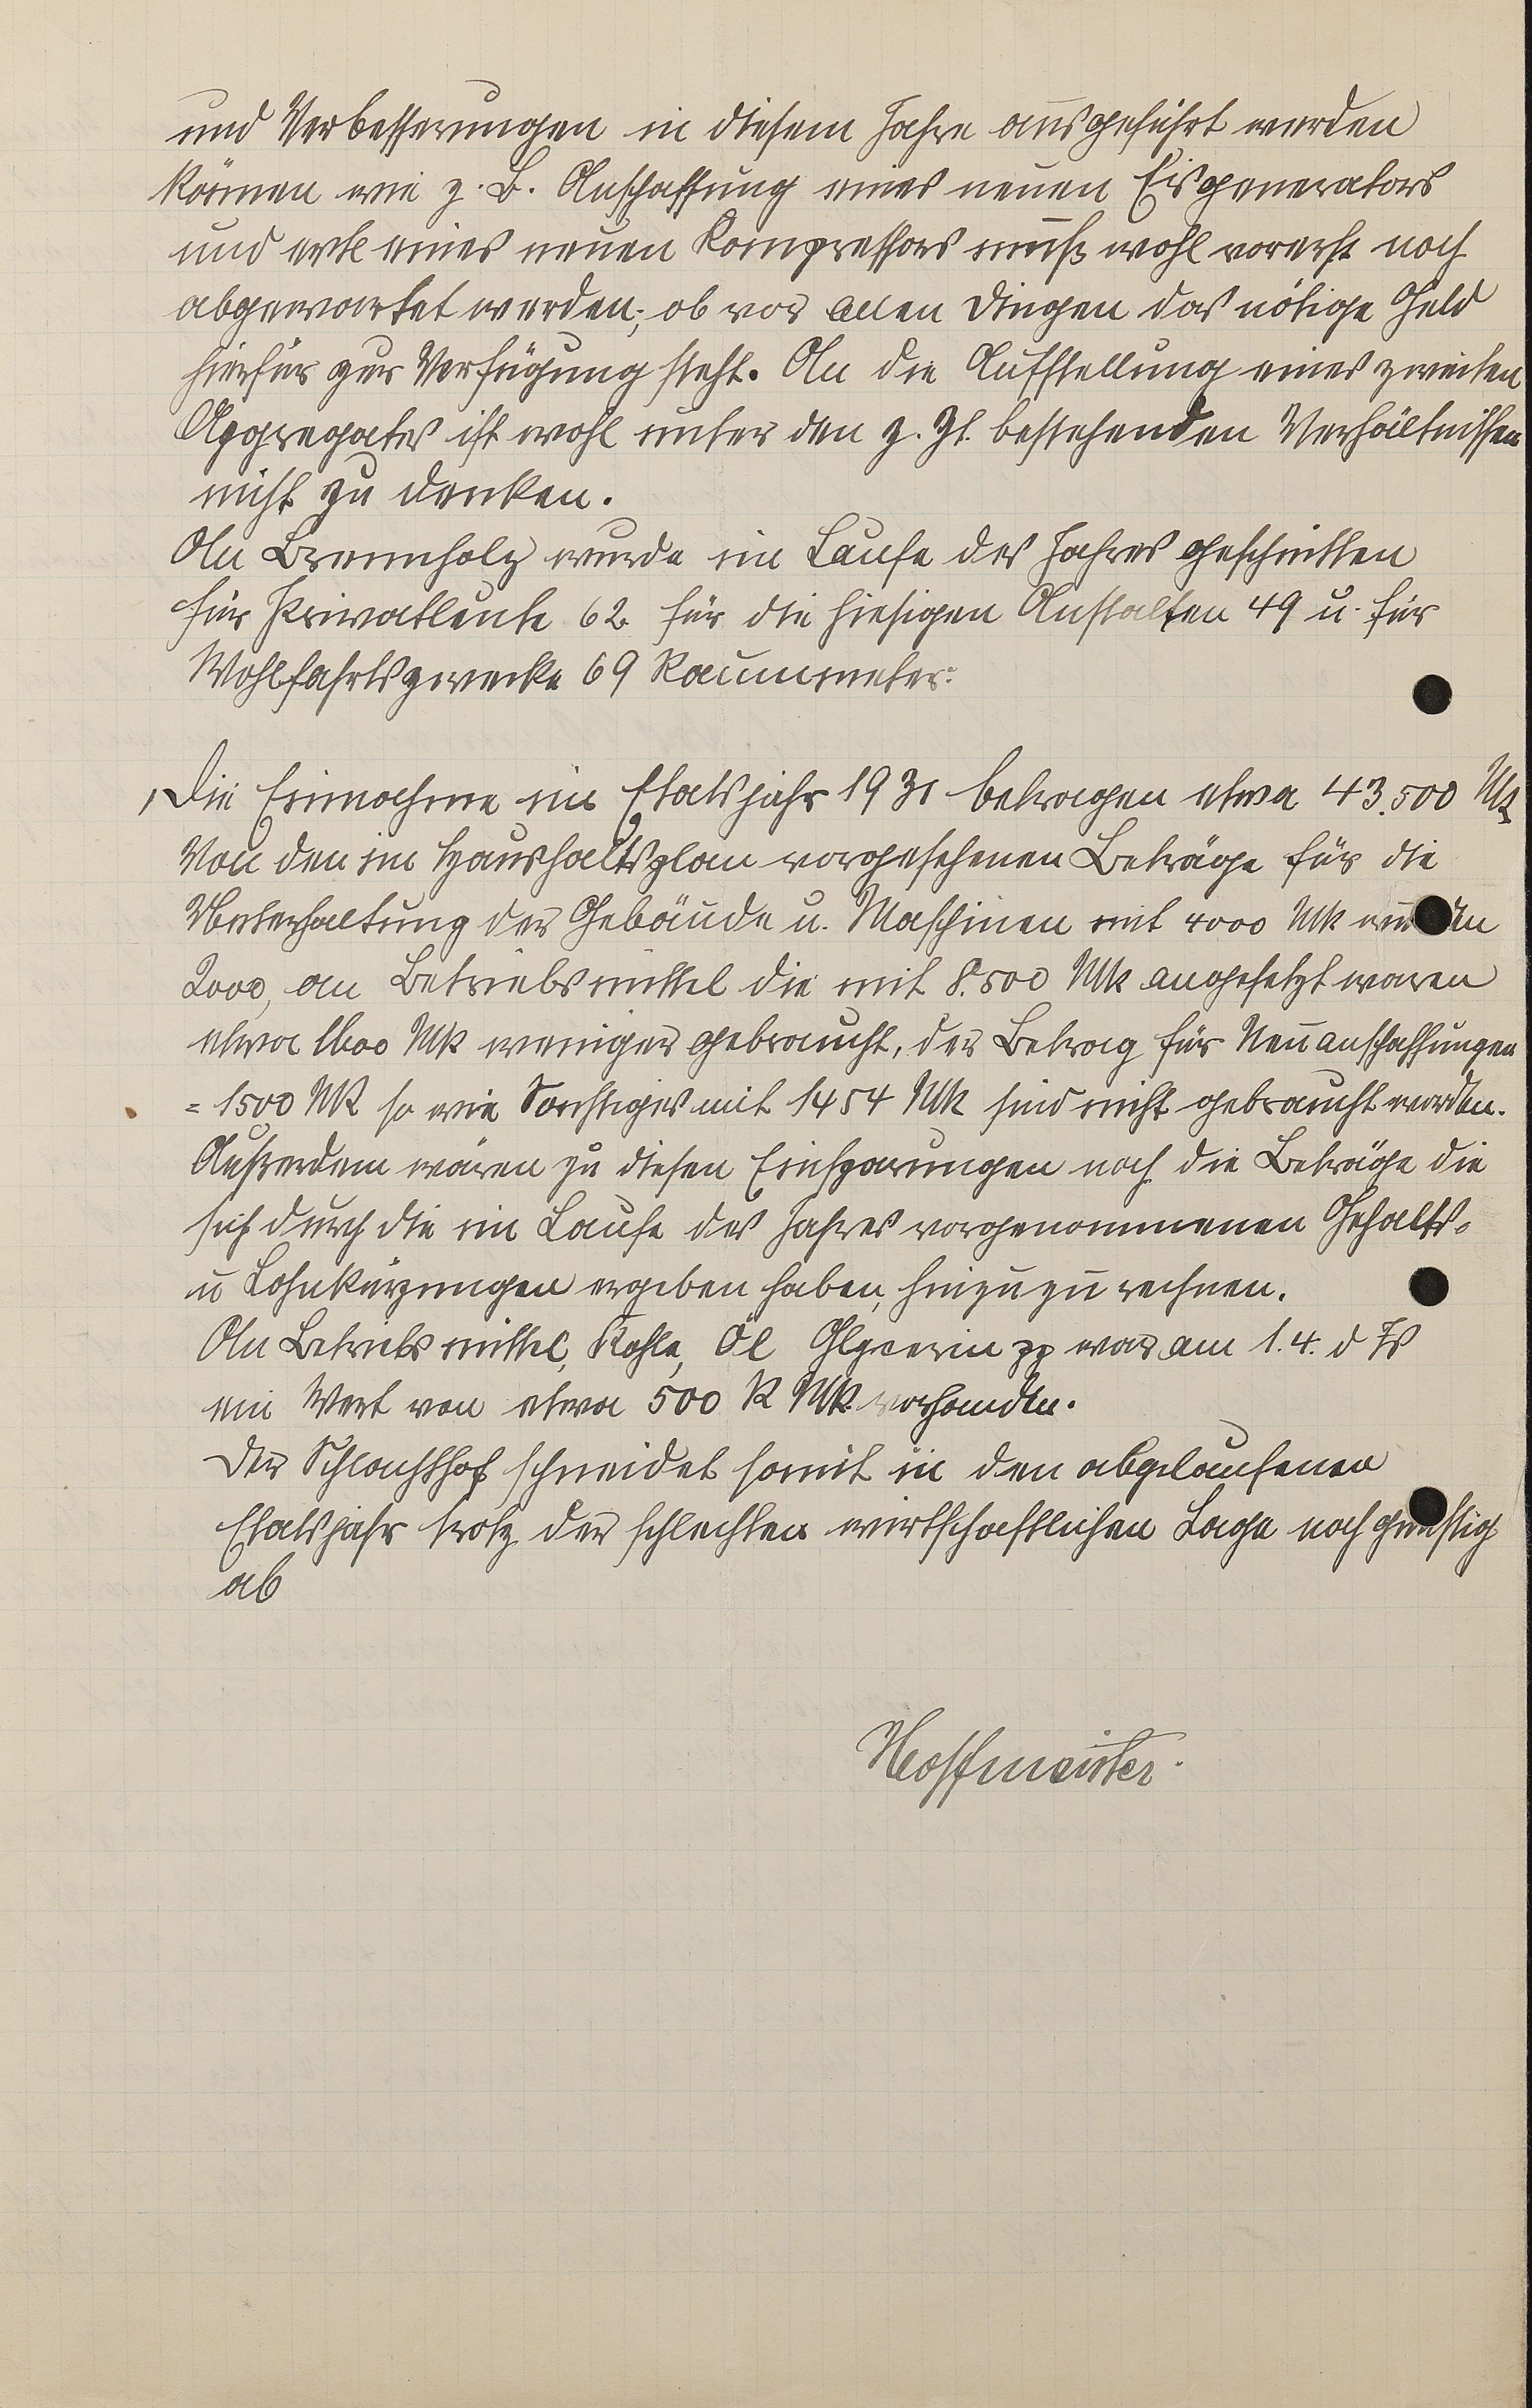 und Verbesserungen in diesem Jahre ausgeführt werden
können wie z. B. Anschaffung eines neuen Eisgenerators
und evtl eines neuen Kompressors muß wohl vorerst noch
abgewartet werden, ob vor allen Dingen das nötige Geld
hierfür zur Verfügung steht. An die Aufstellung eines zweiten
Aggregates ist wohl unter den z. Zt. bestehenden Verhältnissen
nicht zu denken.
An Brennholz wurde im Laufe des Jahres geschnitten
für Privatleute 62 für die hiesigen Anstalten 49 u. für
Wohlfahrtszwecke 69 Raummeter.
Die Einnahme im Etatsjahr 1931 betragen etwa 43.500 Mk
Von den im Haushaltsplan vorgesehenen Beträge für die
Unterhaltung der Gebäude u. Maschinen mit 4000 Mk wurden
2000, an Betriebsmittel die mit 8.500 Mk angesetzt waren
etwa Mk weniger gebraucht, der Betrag für Neuanschaffungen
= 1500 Mk so wie Sonstiges mit 1454 Mk sind nicht gebraucht worden.
Außerdem wären zu diesen Einsparungen noch die Beträge die
sich durch die im Laufe des Jahres vorgenommenen Gehalts-
u Lohnkürzungen ergeben haben, hinzuzu rechnen.
An Betriebsmittel, Kohle, Öl Glycerin pp war am 1.4. d Js
ein Wert von etwa 500 R Mk vorhanden.
Der Schlachthof schneidet somit in den abgelaufenen
Etatsjahr trotz der schlechten wirtschaftlichen Lage noch günstig
ab
Hoffmeister.